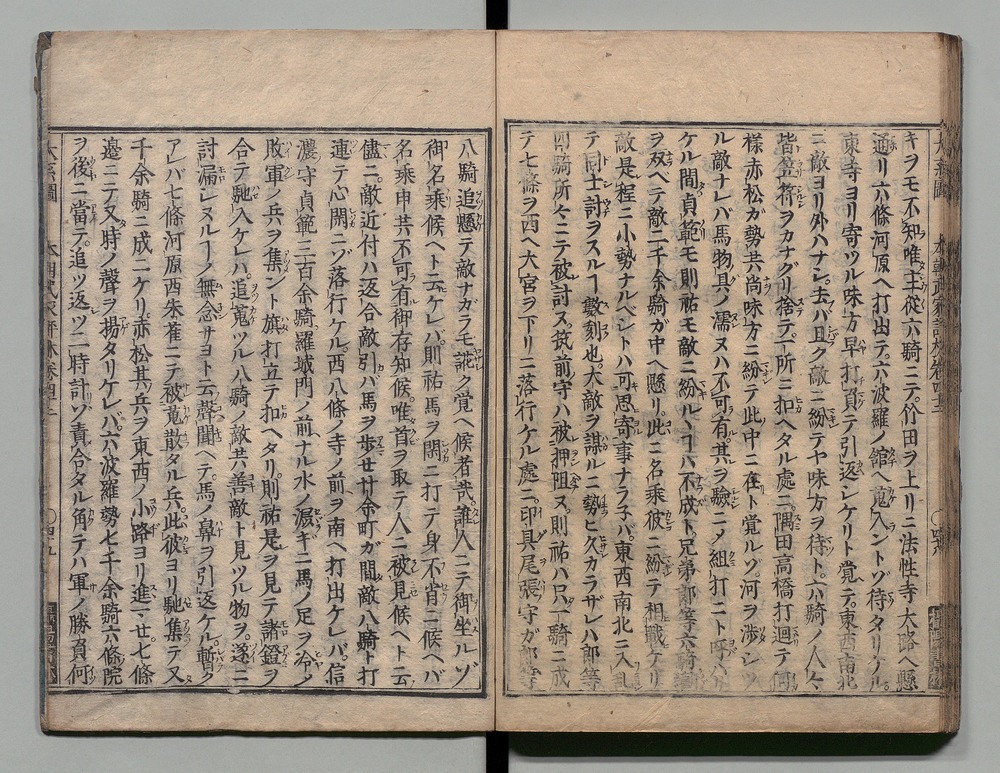 キヲモ不知唯主從六騎ニテ竹田ヲ上リニ法性寺大路ヘ懸
通リ六條河原ヘ打出テ六波羅ノ館ヘ入ントゾ待タリケル
東寺ヨリ寄ツル味方早打負テ引返シケリト覚テ東西南北
ニ敵ヨリ外ハナシ去ハ且ク敵ニ紛テヤ味方ヲ待ト六騎ノ人々
皆笠符ヲカナグリ捨テ一所ニ扣ヘタル處ニ隅田高橋打廻テ
様赤松ガ勢共尚味方ニ紛テ此中ニ在ト覚ルゾ河ヲ渉シツ
ル敵ナレバ馬物具ノ濡ヌハ不可有其ヲ驗ニメ組打ニト呼ハリ
ケル間貞範モ則祐モ敵ニ紛ルヽヿハ不成ト兄弟郎等六騎
ヲ双ベテ敵二千余騎ガ中ヘ懸リ此ニ名乘彼ニ紛テ相戰ケリ
敵是程ニ小勢ナルベシトハ可思寄事ナラ子バ東西南北ニ入乱
テ同士討ヲスルヿ數刻也大敵ヲ謀ルニ勢ヒ久カラザレハ郎等
四騎所々ニテ被討ヌ筑前守ハ被押阻ヌ則祐ハ只一騎ニ成
テ七條ヲ西ヘ大宮ヲ下リニ落行ケル處ニ印具尾張守ガ郎等
八騎追懸テ敵ナガラモ誠ク覚ヘ候者哉誰人ニテ御坐ルゾ
御名乘候ヘト云ケレバ則祐馬ヲ閑ニ打テ身不肖ニ候ヘバ
名乘申共不可有御存知候唯首ヲ取テ人ニ被見候ヘト云
儘ニ敵近付ハ返合敵引バ馬ヲ歩セ廿余町ガ間敵八騎ト打
連テ心閑ニゾ落行ケル西八條ノ寺ノ前ヲ南ヘ打出ケレバ信
濃守貞範三百余騎羅城門ノ前ナル水ノ潺キニ馬ノ足ヲ冷メ
敗軍ノ兵ヲ集ント旗打立テ扣ヘタリ則祐是ヲ見テ諸鐙ヲ
合テ馳入ケレハ追蒐ツル八騎ノ敵共善敵ト見ツル物ヲ遂ニ
討漏シヌルヿノ無念サヨト云聲聞ヘテ馬ノ鼻ヲ引返ケル暫ク
アレバ七條河原西朱雀ニテ被蒐散タル兵此彼ヨリ馳集テ又
千余騎ニ成ニケリ赤松其兵ヲ東西ノ小路ヨリ進マせ七條
邊ニテ又時ノ聲ヲ揚タリケレバ六波羅勢七千余騎六條院
ヲ後ニ當テ追ツ返ツ二時計ゾ責合タル角テハ軍ノ勝負何